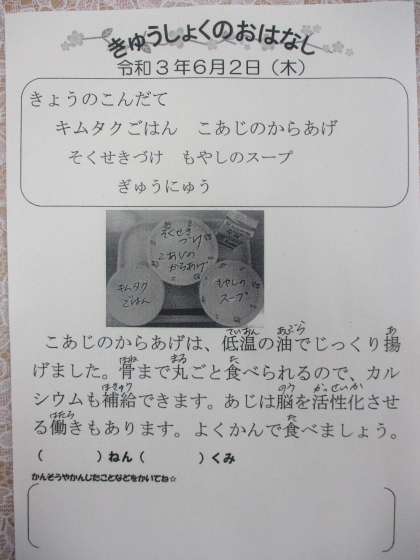 きゅうしょくのおはなし
令和3年6月2日（木）
きょうのこんだて
キムタクごはん　こあじのからあげ
そくせきづけ　もやしのスープ
ぎゅうにゅう
そくせき
づけ
こあじの
からあげ
キムタク
ごはん
もやしの
スープ
こあじのからあげは、低温の油でじっくり揚
げました。骨まで丸ごと食べられるので、カル
シウムも補給できます。あじは脳を活性化させ
る働きもあります。よくかんで食べましょう。
（　　　）ねん（　　　）くみ
かんそうやかんじたことなどをかいてね☆